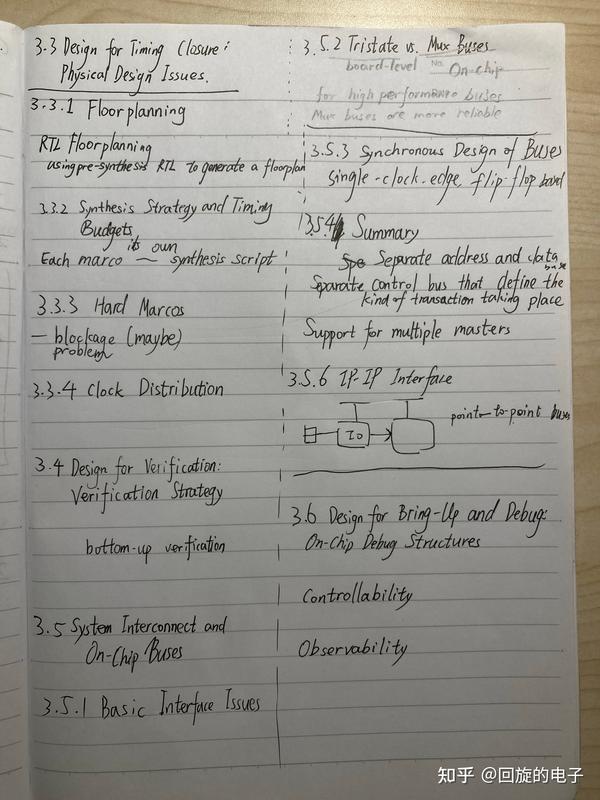 3.3 Design for Timing Closure:
Physical Design Issues.
3.3.1 Floorplanning
RTL Floorplanning
using pre-synthesis RTL to generate a floorplan
3.3.2 Synthesis Strategy and Timing
Budgets
its own
Each marco — synthesis script
3.3.3 Hard Marcos
— blockage (maybe)
problem
3.3.4 Clock Distribution
3.4 Design for Verification:
Verification Strategy
bottom-up verification
3.5 System Interconnect and
On-Chip Buses
3.5.1 Basic Interface Issues
3.5.2 Tristate vs. Mux Buses
board-level No. On-chip
for high performance buses
Mux buses are more reliable
3.5.3 Synchronous Design of Buses
single-clock-edge, flip-flop based
3.5.4 Summary
Separate address and data
buse
Separate control bus that define the
kind of transaction taking place
Support for multiple masters
3.5.6 IP-IP Interface
IO
point-to-point buses
3.6 Design for Bring-Up and Debug:
On-Chip Debug Structures
Controllability
Observability
知乎 @回旋的电子